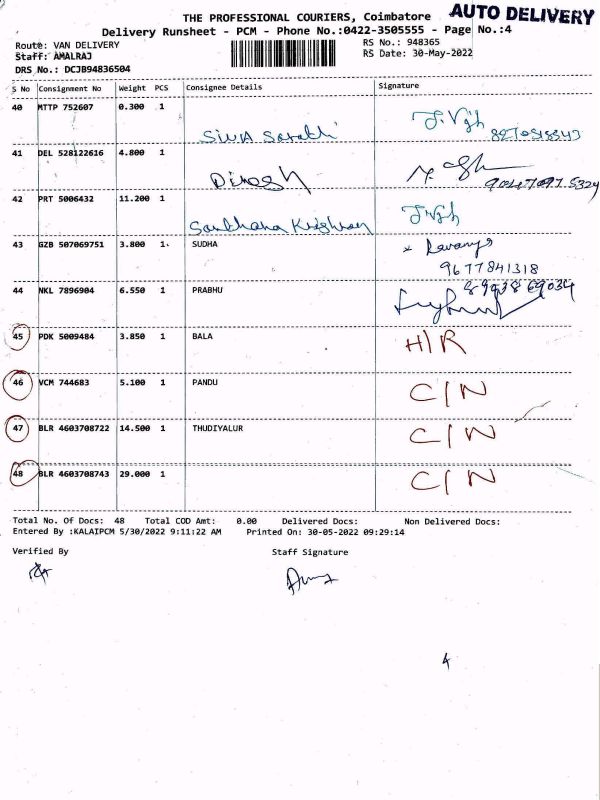 THE PROFESSIONAL COURIERS, Coimbatore AUTO DELIVERY
Delivery Runsheet - PCM - Phone No.:0422-3505555 - Page No.:4
Route: VAN DELIVERY RS No.: 948365
Staff: AMALRAJ RS Date: 30-May-2022
DRS No.: DCJB94836504
S No Consignment No Weight PCS Consignee Details Signature
40 MTTP 752607 0.300 1
Siva Sarathi
41 DEL 528122616 4.800 1
Dinesh
42 PRT 5006432 11.200 1
43 GZB 507069751 3.800 1 SUDHA
9677841318
44 NKL 7896904 6.550 1 PRABHU
45 PDK 5009484 3.850 1 BALA H/R
46 VCM 744683 5.100 1 PANDU C/N
47 BLR 4603708722 14.500 1 THUDIYALUR C/N
48 BLR 4603708743 29.000 1 C/N
Total No. Of Docs: 48 Total COD Amt: 0.00 Delivered Docs: Non Delivered Docs:
Entered By :KALAIPCM 5/30/2022 9:11:22 AM Printed On: 30-05-2022 09:29:14
Verified By Staff Signature
4